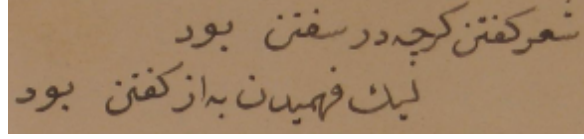 شعر کفتن کرچه در سفتن بود
لیک فهمیدن به از کفتن بود